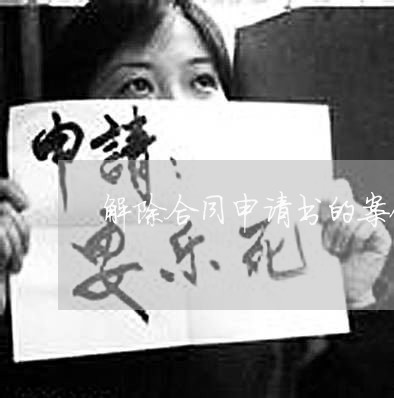 申請：
解除合同申请书的案
安乐死